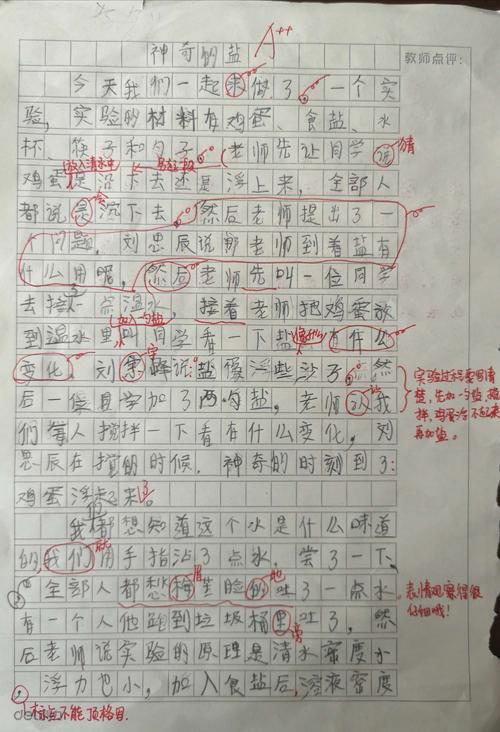 神奇的盐
A++
教师点评：
今天我们一起来做了。一个实
验，实验的材料有鸡蛋、食盐、水
杯、筷子和勺子。老师先让同学说猜
放入清水中
鸡蛋是沉下去还是浮上来，全部人
会
都说是沉下去。然后老师提出了一
问题，刘思辰说
老师到着盐有
什么用呢，然后老师先叫一位同学
去接一点温水，接着老师把鸡蛋放
加一勺盐
到温水里叫同学看一下盐有什么
变化，刘
辰说：盐像浮些沙了
然
后一位同学加了两勺盐，老师
我
们每人搅拌一下看有什么变化，刘
思辰在搅的时候，神奇的时刻到了：
鸡蛋浮起来了。
实验过程要写清
楚，先加一勺盐，搅
拌，鸡蛋浮不起来
再加盐。
我们都想知道这个水是什么味道
的我们用手指沾了点水，尝了一下、
全部人都愁
脸的吐了一点水
表情观察得很
仔细哦！
有一个人他跑到垃圾桶里吐了，然
后老师说实验的原理是清水密度小
浮力也小，加入食盐后，溶液密度
标点不能顶格目。